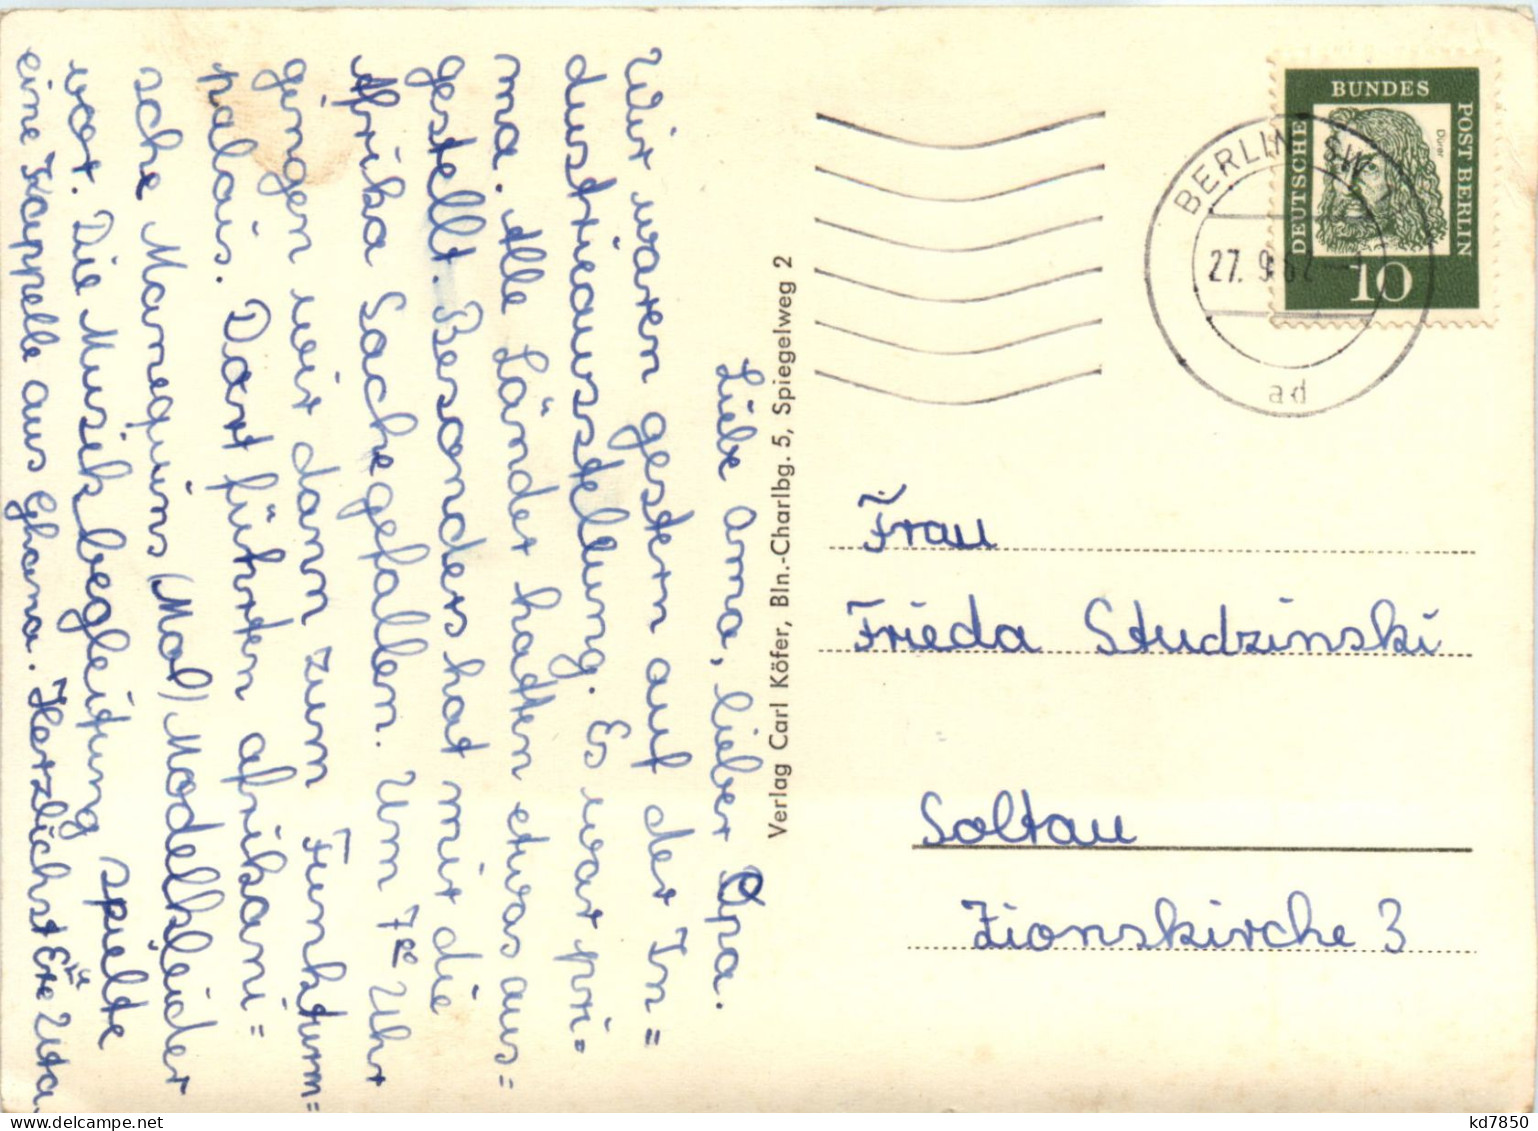 Liebe Oma, lieber Opa.
Wir waren gestern auf der In=
dustrieausstellung. Es war pri=
ma. Alle Länder hatten etwas aus=
gestellt. Besonders hat mir die
Afrika Sache gefallen. Um 7 Uhr
gingen wir dann zum Funkturm=
palais. Dort führten afrikani=
sche Manequins (Mod) Modelkleider
vor. Die Musikbegleitung spielte
eine Kappelle aus Ghana. Herzlichst Uta.
Verlag Carl Köfer, Bln.-Charlbg. 5, Spiegelweg 2
BERLIN SW
27. 9. 62
ad
DEUTSCHE BUNDES POST BERLIN
Dürer
10
Frau
Frieda Studzinski
Soltau
Zionskirche 3
kd7850